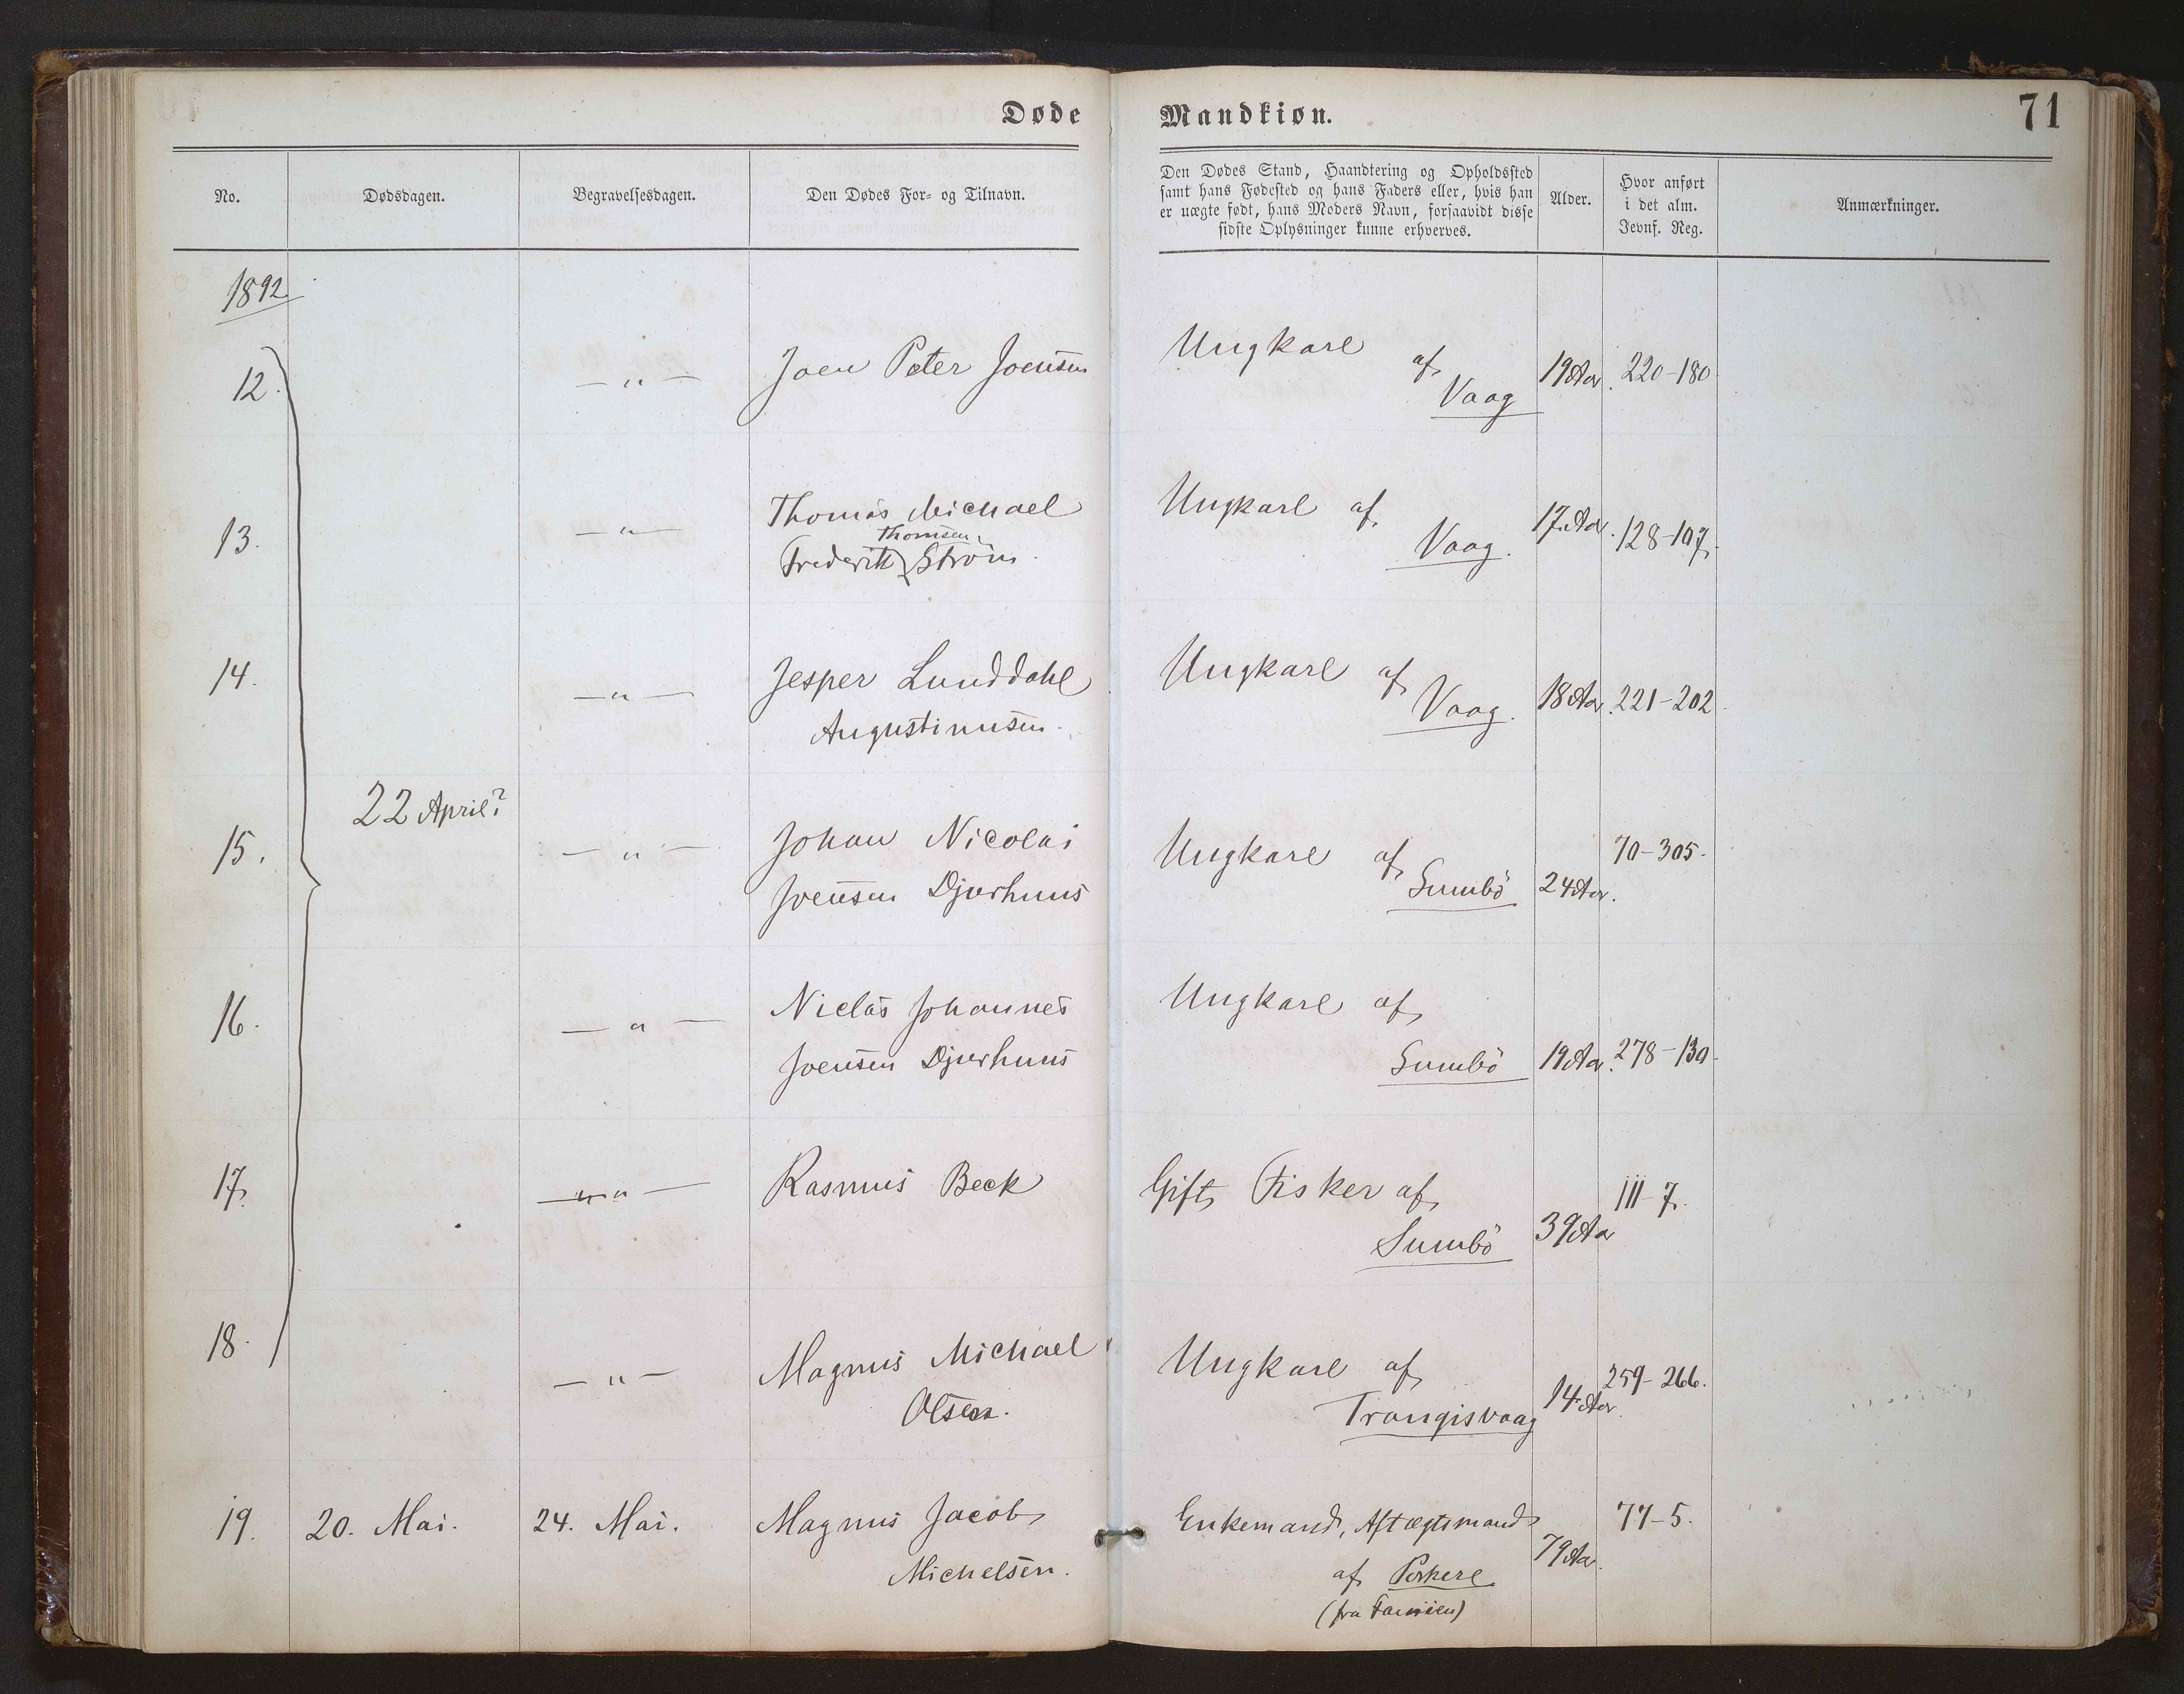 Døde Mandkiøn. 71
No. Dødsdagen. Begravelsesdagen. Den Dødes For- og Tilnavn.
Den Dødes Stand, Haandtering og Opholdssted
samt hans Fødested og hans Faders eller, hvis han
er uægte født, hans Moders Navn, forsaavidt disse
sidste Oplysninger kunne erhverves.
Alder.
Hvor anført
i det alm.
Jevnf. Reg.
Anmærkninger.
1892
12. — " — Joen Peter Joensen Ungkarl af
Vaag 19 Aar. 220-180
13. — " — Thomas Michael Ungkarl af
Thomsen
Frederik Ström. Vaag. 17 Aar. 128-107.
14. — " — Jesper Lunddahl Ungkarl af
Augustinusen. Vaag. 18 Aar. 221-202.
22 April?
15. — " — Johan Nicolai Ungkarl af 70-305.
Joensen Djurhuus Sumbö 24 Aar.
16. — " — Niclas Johannes Ungkarl af
Joensen Djurhuus Sumbö 19 Aar. 278-130.
17. — " — Rasmus Beck Gift Fisker af 111-7.
Sumbö 39 Aar
18. — " — Magnus Michael Ungkarl af 259-266.
Olsen. Trangisvaag 14 Aar.
19. 20. Mai. 24. Mai. Magnus Jacob Enkemand, Aftægtsmand 77-5.
Michelsen. af Porkere 79 Aar.
(fra Famien)